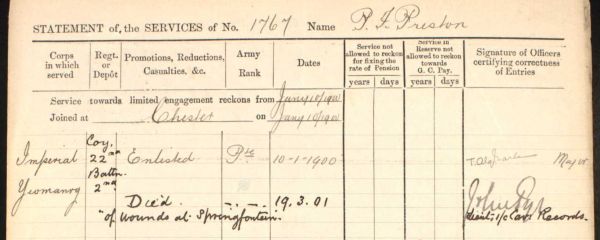 STATEMENT of the SERVICES of No. 1767 Name P. J. Preston
Corps in which served
Regt. or Depôt
Promotions, Reductions, Casualties, &c.
Army Rank
Dates
Service not allowed to reckon for fixing the rate of Pension
years days
Service in Reserve not allowed to reckon towards G. C. Pay.
years days
Signature of Officers certifying correctness of Entries
Service towards limited engagement reckons from Jany 10/1900
Joined at Chester on Jany 10/1900
Imperial Yeomanry
Coy. 22nd Battn. 2nd
Enlisted Pte 10-1-1900 Major
Died 19.3.01
"of wounds at Springfontein.
Lieut. i/c Cav Records.